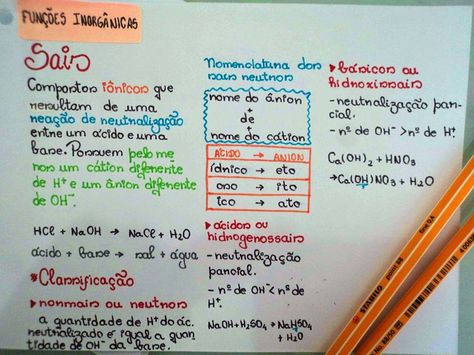 FUNÇÕES INORGÂNICAS
Sais
Compostos iônicos que
resultam de uma
reação de neutralização
entre um ácido e uma
base. Possuem pelo me
nos um cátion diferente
de H⁺ e um ânion diferente
de OH⁻.
HCl + NaOH → NaCl + H₂O
ácido + base → sal + água
*Classificação
▶normais ou neutros
a quantidade de H⁺ do ác.
neutralizado é igual a quan
tidade de OH⁻ da base.
Nomenclatura dos
sais neutros
nome do ânion
+
de
+
nome do cátion
ÁCIDO → ANION
ídrico → eto
oso → ito
ico → ato
▶ácidos ou
hidrogenossais
-neutralização
parcial.
- nº de OH⁻ < nº de
H⁺.
NaOH + H₂SO₄ → NaHSO₄
+ H₂O
▶básicos ou
hidroxissais
-neutralização par
cial.
- nº de OH⁻ > nº de H⁺.
Ca(OH)₂ + HNO₃
→Ca(OH)NO₃ + H₂O
STABILO